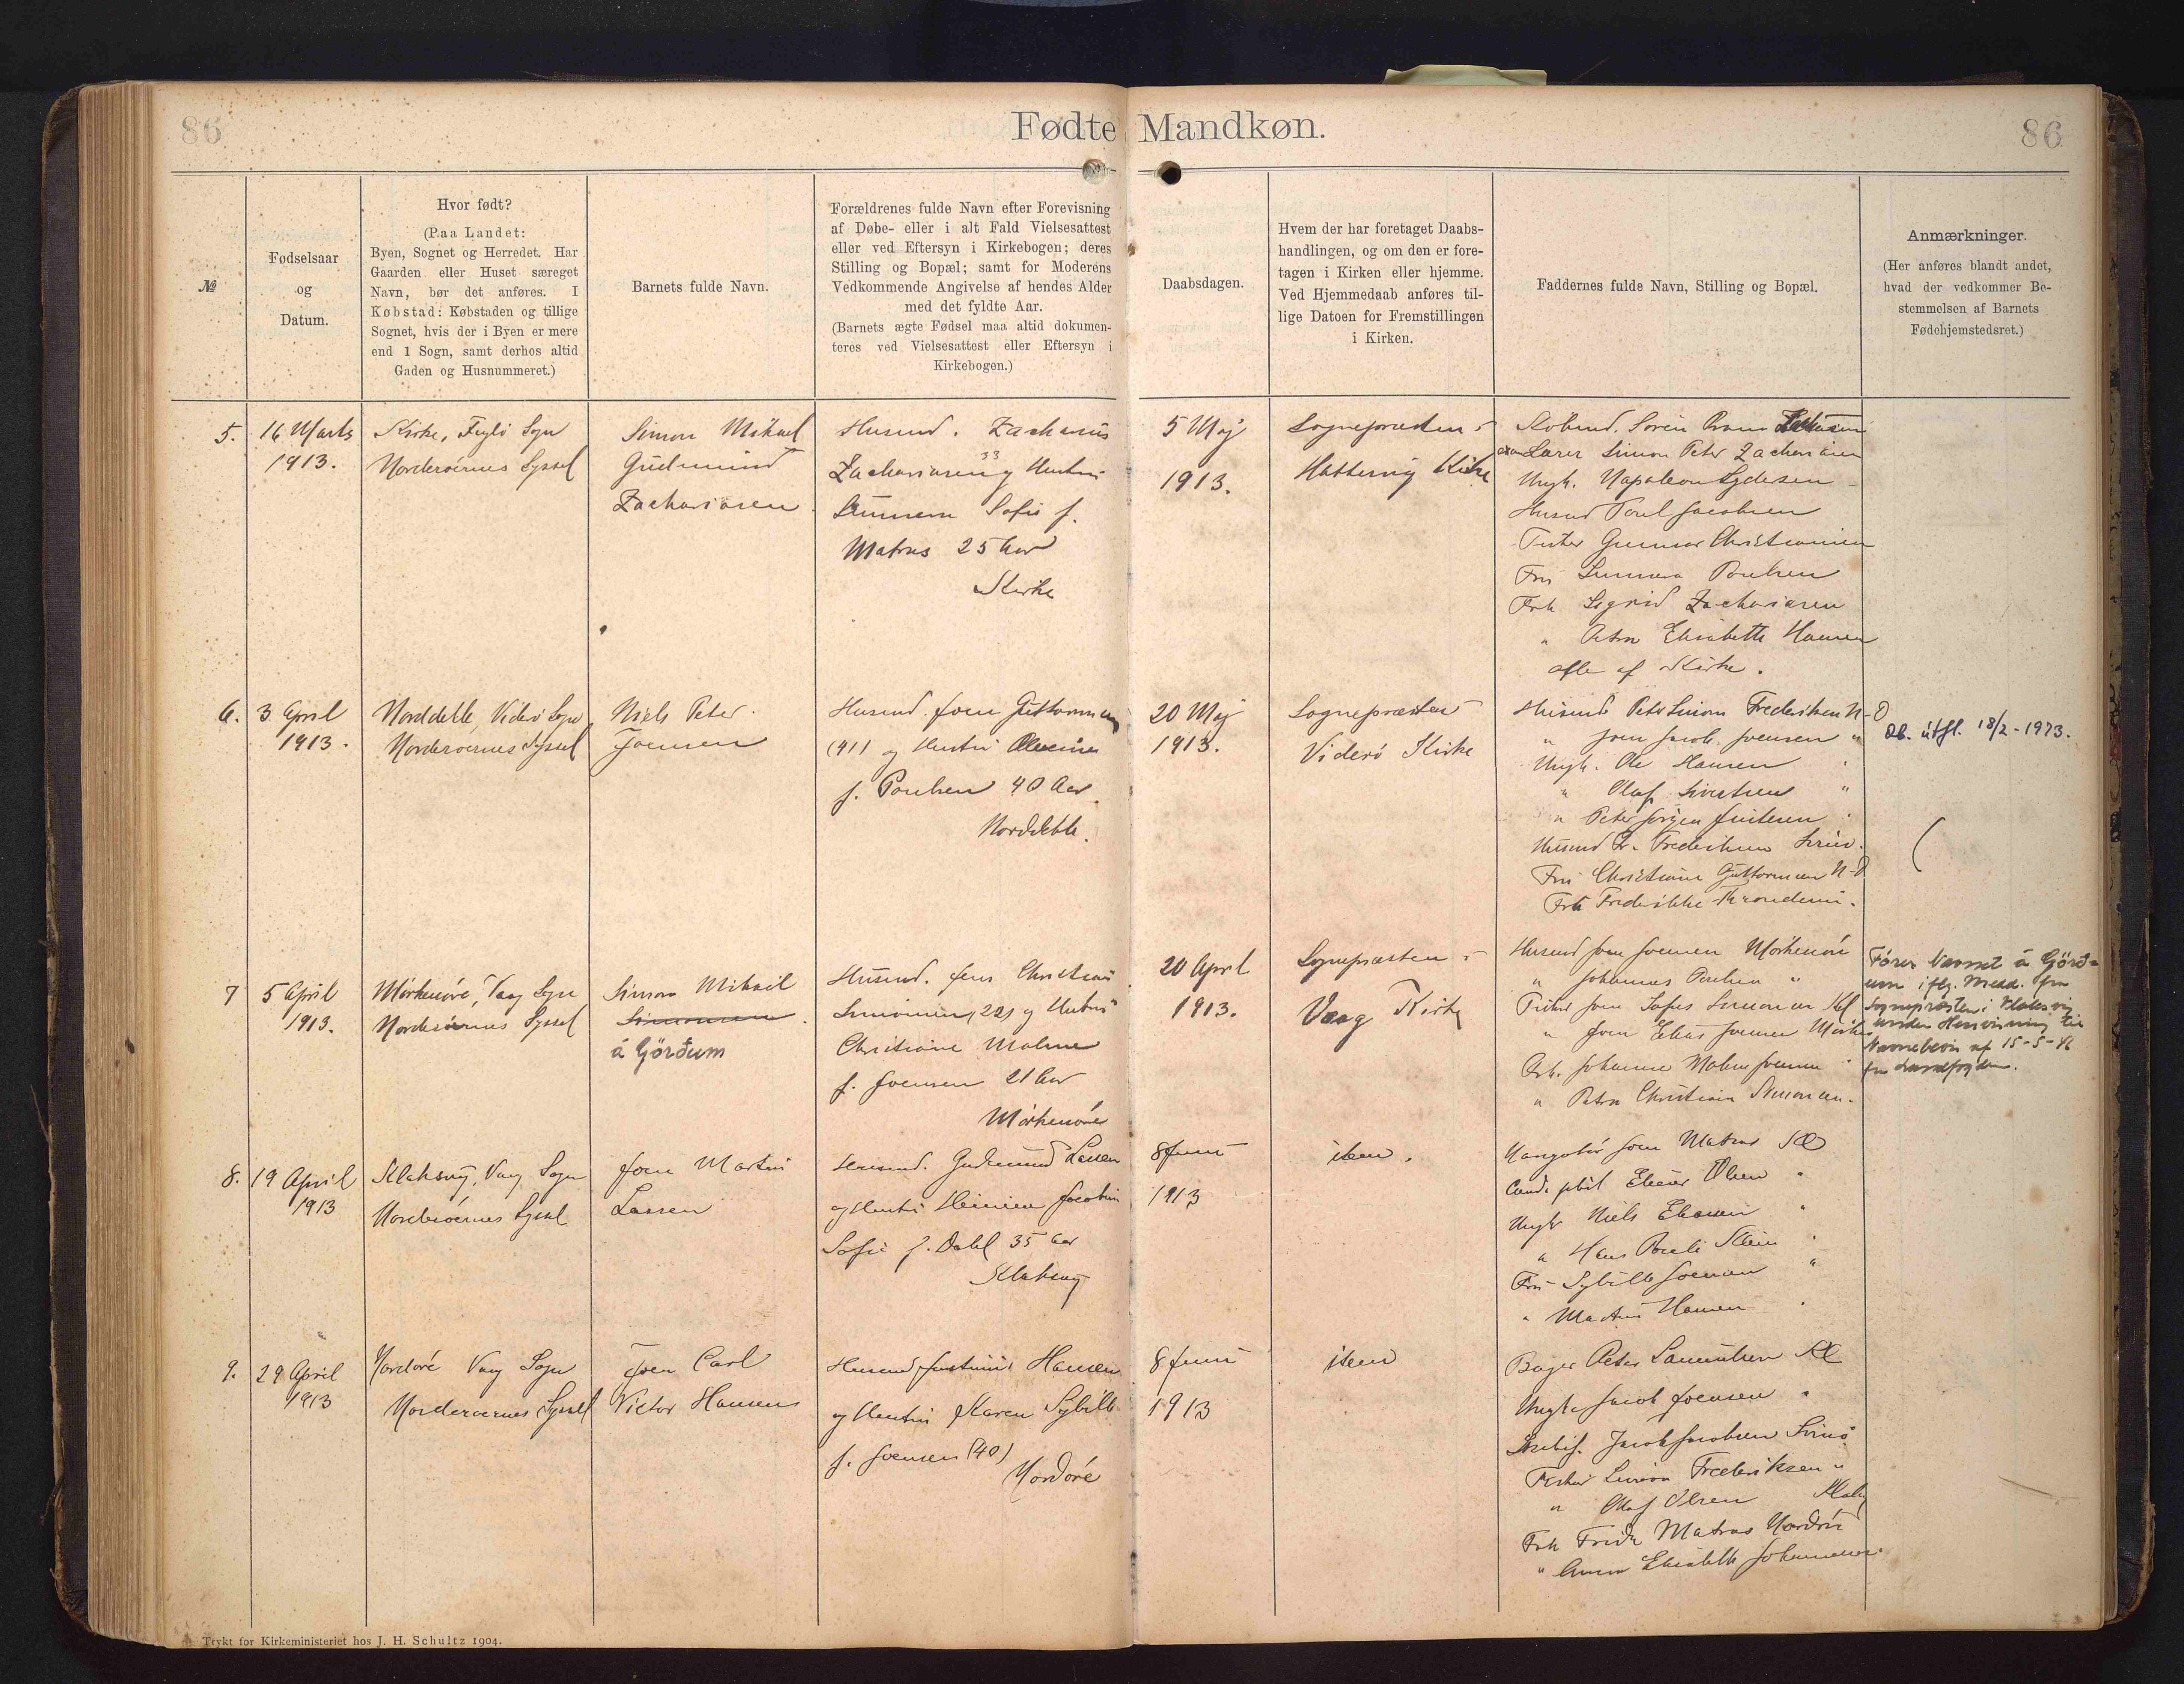 86
Fødte Mandkøn.
86
№
Fødselsaar
og
Datum.
Hvor født?
(Paa Landet:
Byen, Sognet og Herredet. Har
Gaarden eller Huset særeget
Navn, bør det anføres. I
Købstad: Købstaden og tillige
Sognet, hvis der i Byen er mere
end 1 Sogn, samt derhos altid
Gaden og Husnummeret.)
Barnets fulde Navn.
Forældrenes fulde Navn efter Forevisning
af Døbe- eller i alt Fald Vielsesattest
eller ved Eftersyn i Kirkebogen; deres
Stilling og Bopæl; samt for Moderens
Vedkommende Angivelse af hendes Alder
med det fyldte Aar.
(Barnets ægte Fødsel maa altid dokumen-
teres ved Vielsesattest eller Eftersyn i
Kirkebogen.)
Daabsdagen.
Hvem der har foretaget Daabs-
handlingen, og om den er fore-
tagen i Kirken eller hjemme.
Ved Hjemmedaab anføres til-
lige Datoen for Fremstillingen
i Kirken.
Faddernes fulde Navn, Stilling og Bopæl.
Anmærkninger.
(Her anføres blandt andet,
hvad der vedkommer Be-
stemmelsen af Barnets
Fødehjemstedsret.)
5.
16 Marts
1913.
Kirke, Fuglø Sogn
Norderøernes Syssel
Simon Mikael
Gudmund
Zachariasen
Husmd. Zacharias
Zachariasen 33 og Hustru
Sofie f.
Matras 25 Aar
Kirke
5 Maj
1913.
Sognepræsten i
Hattervig Kirke
Købmd. Sören
Lærer Simon Peter Zachariasen
Ungk. Napoleon Lydersen
Husmd Poul Jacobsen
Fisker Gunnar Christiansen
Fru Poulsen
Frk Sigrid Zachariasen
" Petra Elisabeth Hansen
alle af Kirke.
6.
3 April
1913.
Norddeble, Viderø Sogn
Norderøernes Syssel
Niels Peter
Joensen
Husmd. Joen Guttormsen
(41) og Hustru
f. Poulsen 40 Aar
Norddeble.
20 Maj
1913.
Sognepræsten
Viderø Kirke
Husmd Peter Simon Frederiksen N-D
" Joen Jacob Joensen "
Ungk. Ole Hansen "
" Olaf "
" Peter Jörgen "
Husmd Fredriksen
Fru Christiane Guttormsen N-D
Frk Frederikke
Db. útfl. 18/2-1973.
7
5 April
1913.
Mörkenöre, Vaag Sogn
Norderøernes Syssel
Simon Mikael
Simonsen
á Görðum
Husmd. Jens Christian
Simonsen, 22, og Hustru
Christiane Malene
f. Joensen 21 Aar
Mörkenöre
20 April
1913.
Sognepræsten i
Vaag Kirke
Husmd Joen Joensen Mörkenöre
" Johannes Poulsen "
Fisker Joen Simonsen Kl
" Joen Elias Joensen
Johanne Malene Joensen
" Petra Christiane Simonsen.
Fører Navnet á Görð-
um iflg. Medd. fra
Sognepræsten i Klaksvig
under Henvisning til
Navnebevis af 15-5-
fra Landfogden.
8.
19 April
1913
Klaksvig, Vaag Sogn
Norderøernes Syssel
Joen Martin
Lassen
Husmd. Gudmund Lassen
og Hustru Jacobine
Sofie f. Dahl 35 Aar
Klaksvig
8 Juni
1913
item.
Joen Matras Kl
Cand. phil Olsen "
Ungk Niels "
" Hans Pauli Klein "
Fru Sybille Joensen "
" Hansen "
9.
29 April
1913
Nordøre Vaag Sogn
Norderøernes Syssel
Joen Carl
Victor Hansen
Husmd. Justinus Hansen
og Hustru Karen Sybille
f. Joensen (40)
Nordøre
8 Juni
1913
item
Bager Peter Samuelsen Kl
Ungk Jacob Joensen "
Jacob Jacobsen Svinø
Fisker Simon Frederiksen "
" Olaf Olsen Klaksv
Frk Frida Matras Nordøre
" Anna Elisabeth
Trykt for Kirkeministeriet hos J. H. Schultz 1904.